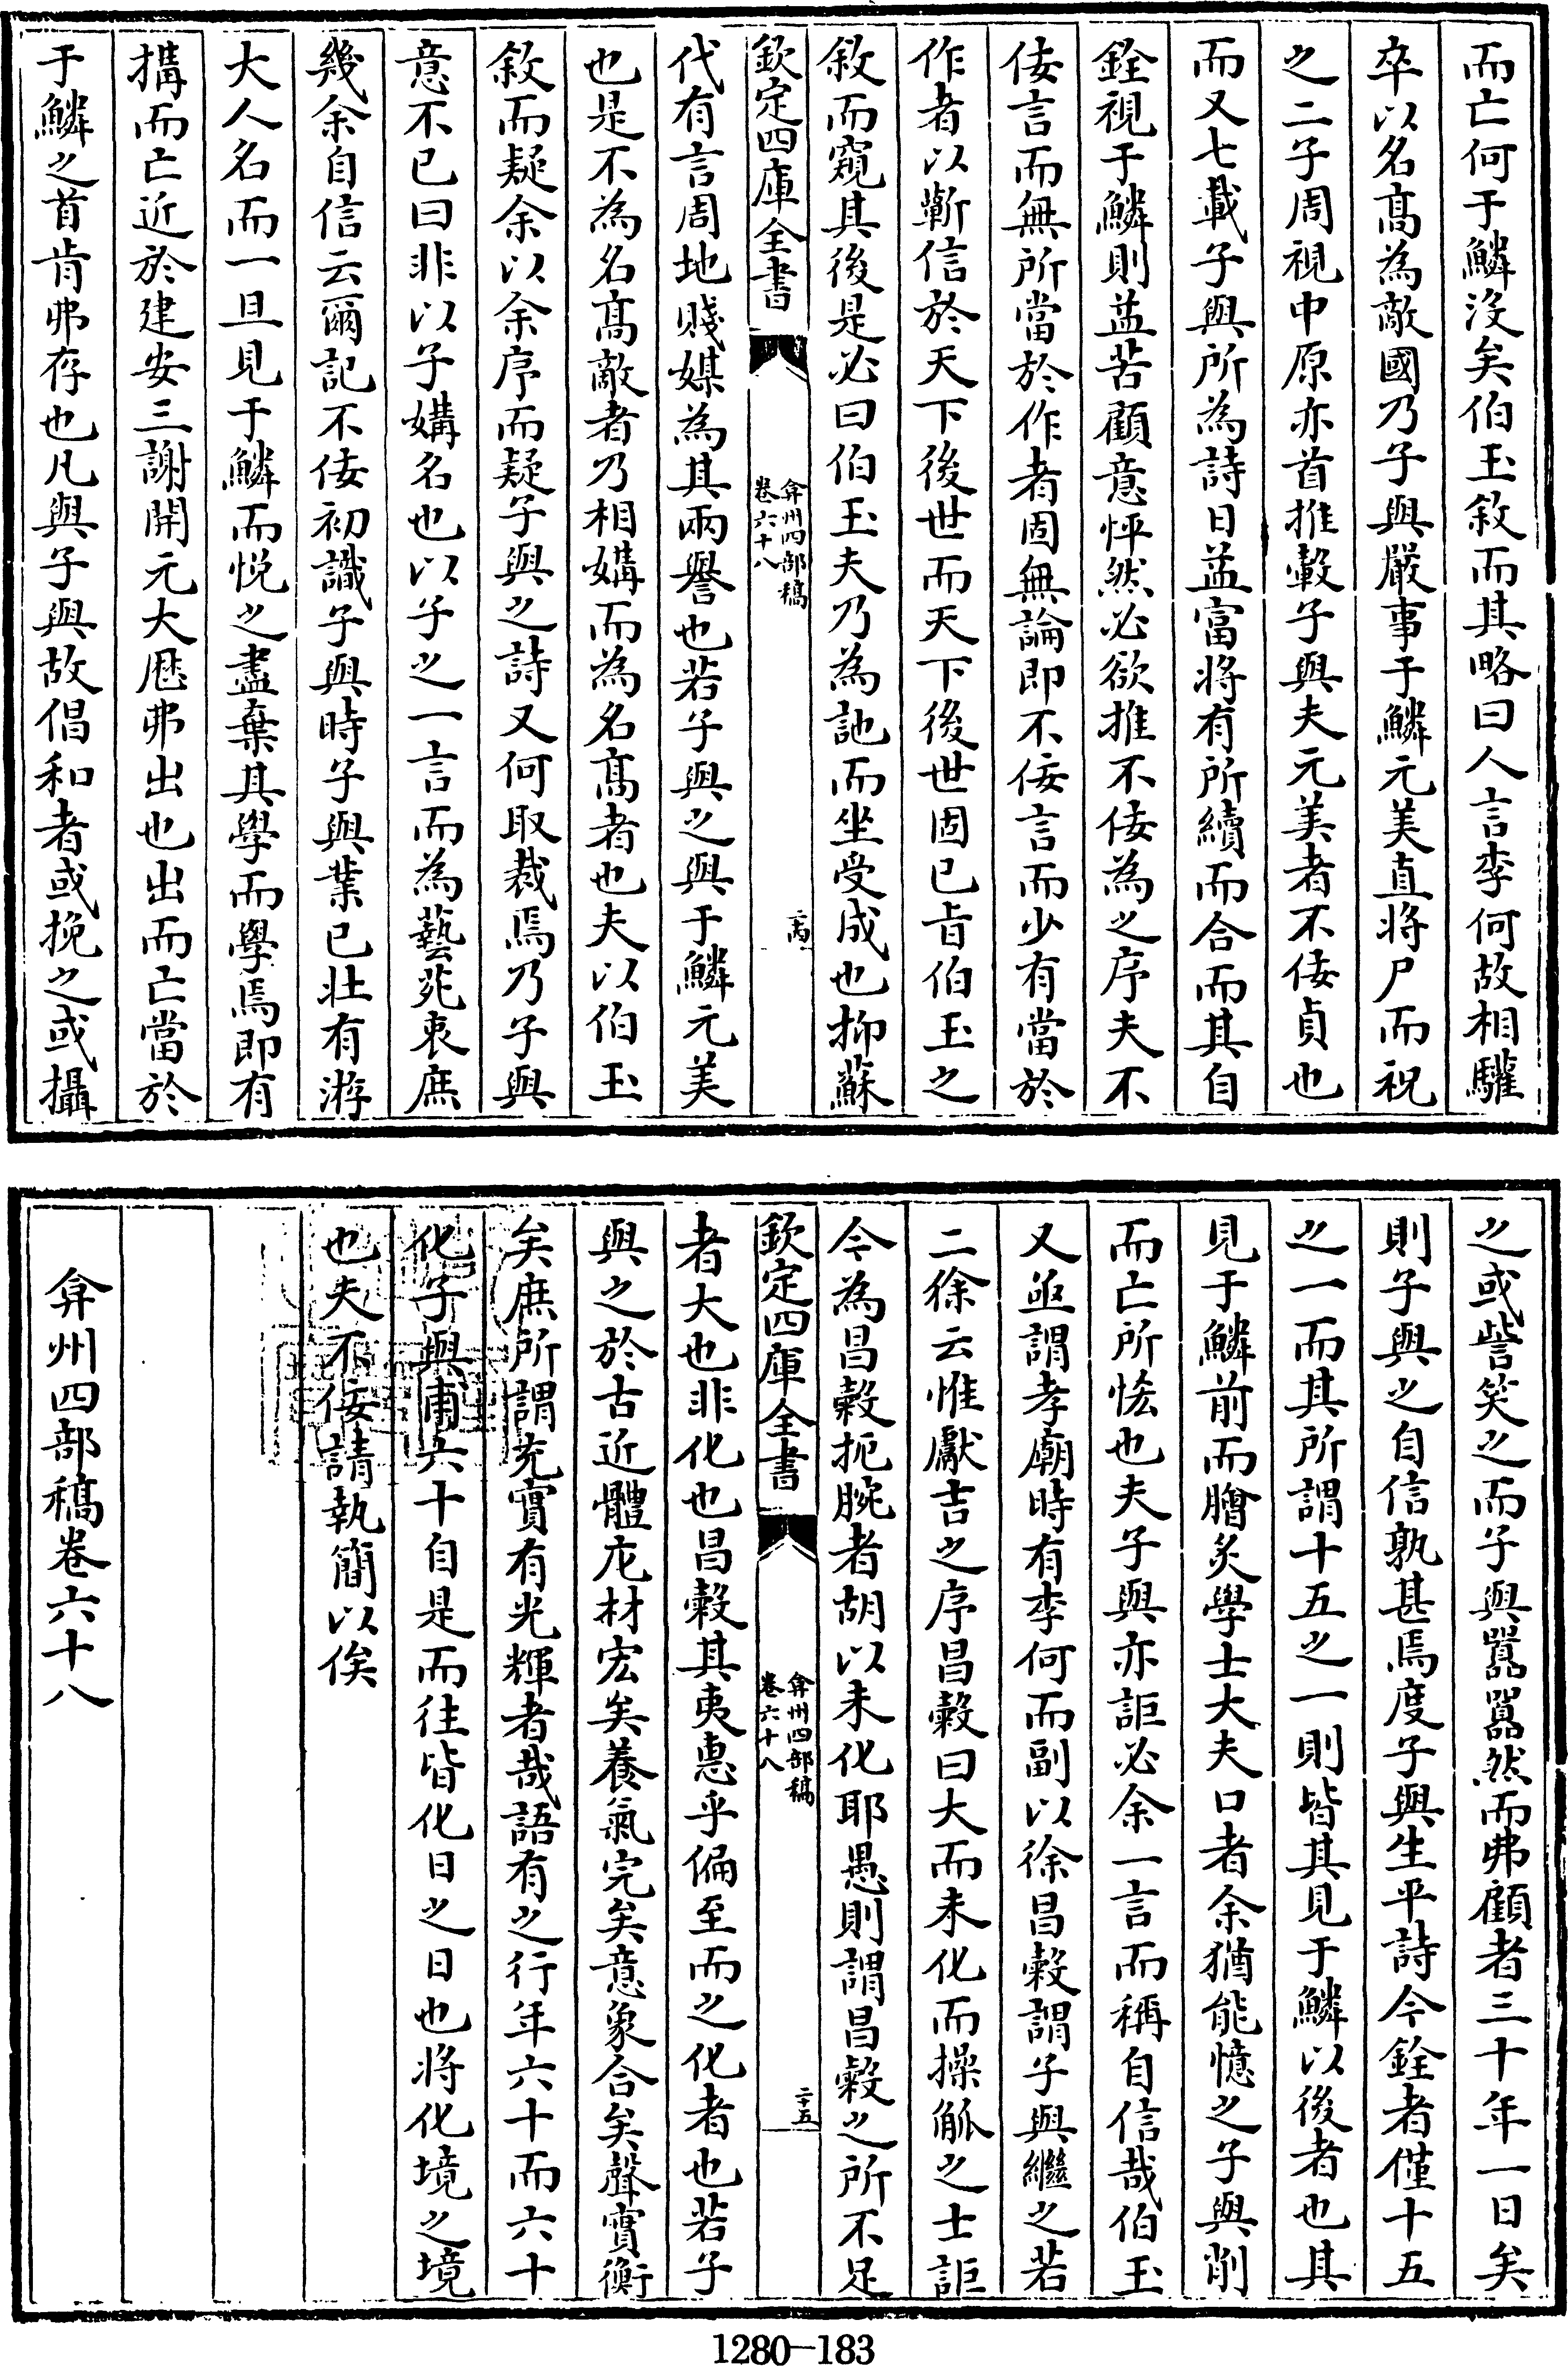 而亡何于鱗沒矣伯玉敘而其略曰人言李何故相驩
卒以名髙為敵國乃子與嚴事于鱗元美直將尸而祝
之二子周視中原亦首推轂子與夫元美者不佞貞也
而又七載子與所為詩日益富將有所續而合而其自
銓視于鱗則益苦顧意怦然必欲推不佞為之序夫不
佞言而無所當於作者固無論即不佞言而少有當於
作者以蘄信於天下後世而天下後世固已㫖伯玉之
敘而窺其後是必曰伯玉夫乃為訑而坐受成也抑蘇
欽定四庫全書
弇州四部稿
卷六十八
代有言周地賤媒為其兩譽也若子與之與于鱗元美
也是不為名髙敵者乃相媾而為名髙者也夫以伯玉
敘而疑余以余序而疑子與之詩又何取裁焉乃子與
意不已曰非以子媾名也以子之一言而為藝苑衷庶
幾余自信云爾記不佞初識子與時子與業已壯有游
大人名而一旦見于鱗而悅之盡棄其學而學焉即有
搆而亡近於建安三謝開元大厯弗出也出而亡當於
于鱗之首肯弗存也凡與子與故倡和者或挽之或攝
之或訾笑之而子與囂囂然而弗顧者三十年一日矣
則子與之自信孰甚焉度子與生平詩今銓者僅十五
之一而其所謂十五之一則皆其見于鱗以後者也其
見于鱗前而膾炙學士大夫口者余猶能憶之子與削
而亡所恡也夫子與亦詎必余一言而稱自信哉伯玉
又亟謂孝廟時有李何而副以徐昌榖謂子與繼之若
二徐云惟獻吉之序昌榖曰大而未化而操觚之士詎
今為昌榖扼腕者胡以未化耶愚則謂昌榖之所不足
欽定四庫全書
弇州四部稿
卷六十八
二十五
者大也非化也昌榖其夷惠乎偏至而之化者也若子
與之於古近體庀材宏矣養氣完矣意象合矣聲實衡
矣庶所謂充實有光輝者哉語有之行年六十而六十
化子與甫六十自是而往皆化日之日也將化境之境
也夫不佞請執簡以俟
弇州四部稿卷六十八
1280—183